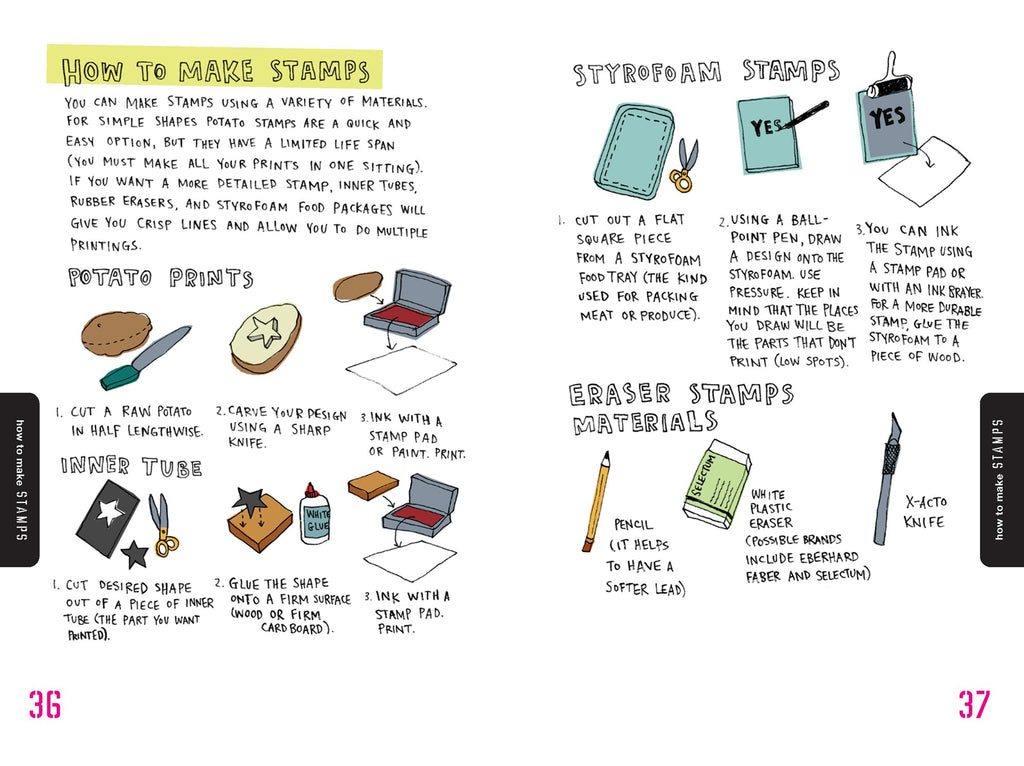 HOW TO MAKE STAMPS
YOU CAN MAKE STAMPS USING A VARIETY OF MATERIALS.
FOR SIMPLE SHAPES POTATO STAMPS ARE A QUICK AND
EASY OPTION, BUT THEY HAVE A LIMITED LIFE SPAN
(YOU MUST MAKE ALL YOUR PRINTS IN ONE SITTING).
IF YOU WANT A MORE DETAILED STAMP, INNER TUBES,
RUBBER ERASERS, AND STYROFOAM FOOD PACKAGES WILL
GIVE YOU CRISP LINES AND ALLOW YOU TO DO MULTIPLE
PRINTINGS.
POTATO PRINTS
1. CUT A RAW POTATO
IN HALF LENGTHWISE.
2. CARVE YOUR DESIGN
USING A SHARP
KNIFE.
3. INK WITH A
STAMP PAD
OR PAINT. PRINT.
INNER TUBE
WHITE
GLUE
1. CUT DESIRED SHAPE
OUT OF A PIECE OF INNER
TUBE (THE PART YOU WANT
PRINTED).
2. GLUE THE SHAPE
ONTO A FIRM SURFACE
(WOOD OR FIRM
CARDBOARD).
3. INK WITH A
STAMP PAD.
PRINT.
how to make STAMPS
36
STYROFOAM STAMPS
YES
YES
1. CUT OUT A FLAT
SQUARE PIECE
FROM A STYROFOAM
FOOD TRAY (THE KIND
USED FOR PACKING
MEAT OR PRODUCE).
2. USING A BALL-
POINT PEN, DRAW
A DESIGN ONTO THE
STYROFOAM. USE
PRESSURE. KEEP IN
MIND THAT THE PLACES
YOU DRAW WILL BE
THE PARTS THAT DON'T
PRINT (LOW SPOTS).
3. YOU CAN INK
THE STAMP USING
A STAMP PAD OR
WITH AN INK BRAYER.
FOR A MORE DURABLE
STAMP, GLUE THE
STYROFOAM TO A
PIECE OF WOOD.
ERASER STAMPS
MATERIALS
PENCIL
(IT HELPS
TO HAVE A
SOFTER LEAD)
SELECTUM
WHITE
PLASTIC
ERASER
(POSSIBLE BRANDS
INCLUDE EBERHARD
FABER AND SELECTUM)
X-ACTO
KNIFE
how to make STAMPS
37